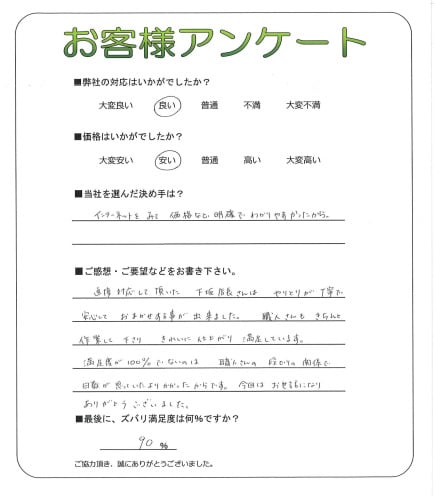 お客様アンケート
■弊社の対応はいかがでしたか?
大変良い 良い 普通 不満 大変不満
■価格はいかがでしたか?
大変安い 安い 普通 高い 大変高い
■当社を選んだ決め手は?
インターネットをみて 価格など明確でわかりやすかったから。
■ご感想・ご要望などをお書き下さい。
直接対応して頂いた 下坂店長さんは やりとりが丁寧で
安心して おまかせする事が出来ました。 職人さんも きちんと
作業して下さり きれいに仕上がり 満足しています。
満足度が100%でないのは 職人さんの 段どりの関係で
日数が思っていたよりかかったからです。 今回は お世話になり
ありがとうございました。
■最後に、ズバリ満足度は何%ですか?
90 %
ご協力頂き、誠にありがとうございました。